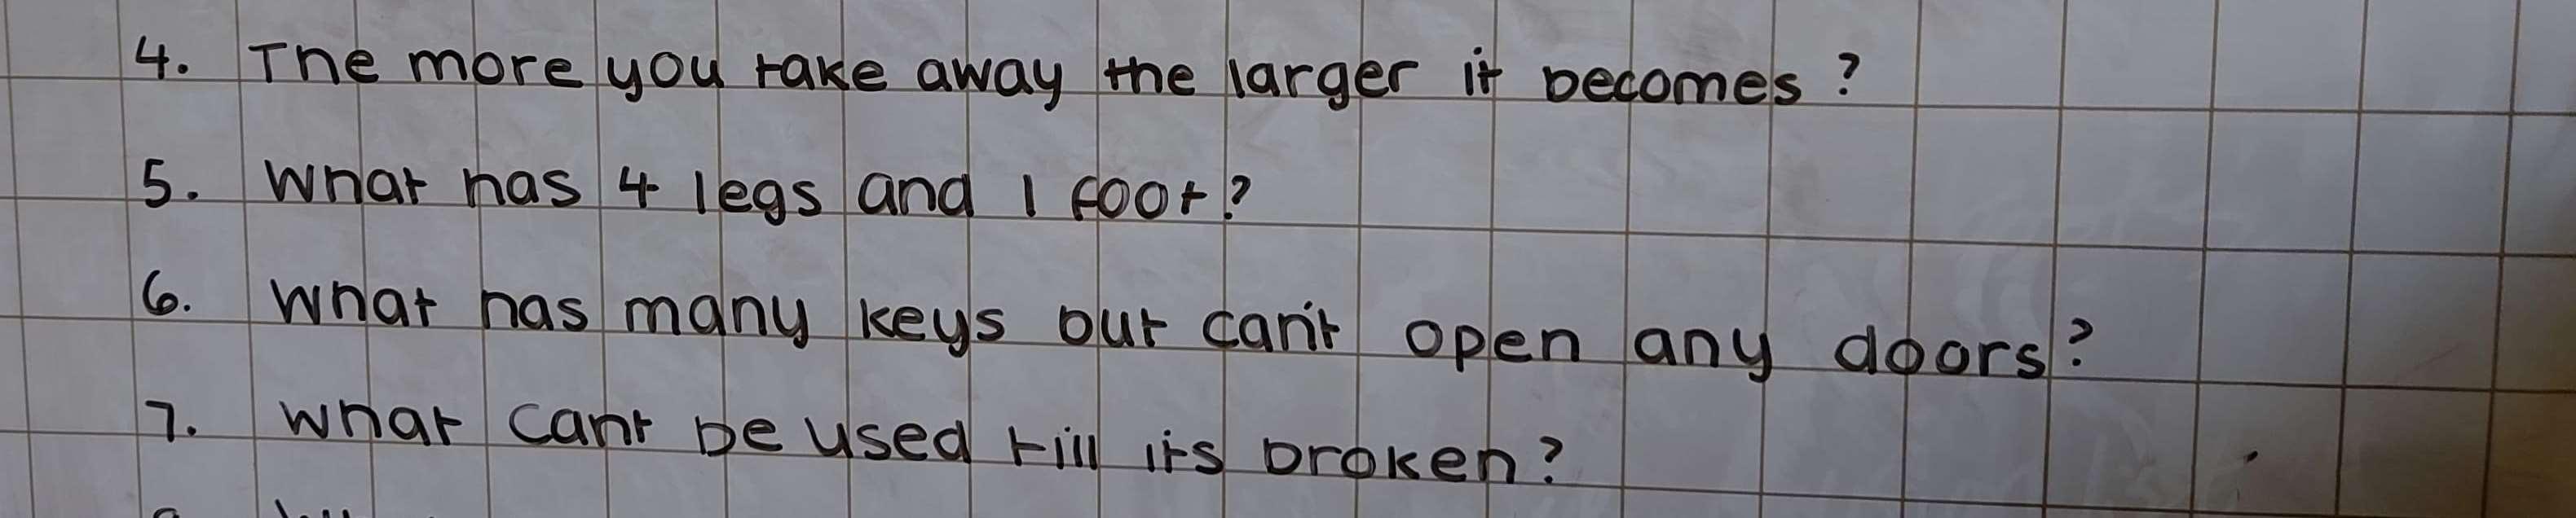 4. The more you take away the larger it becomes?
5. What has 4 legs and 1 foot?
6. What has many keys but can't open any doors?
7. What cant be used till its broken?